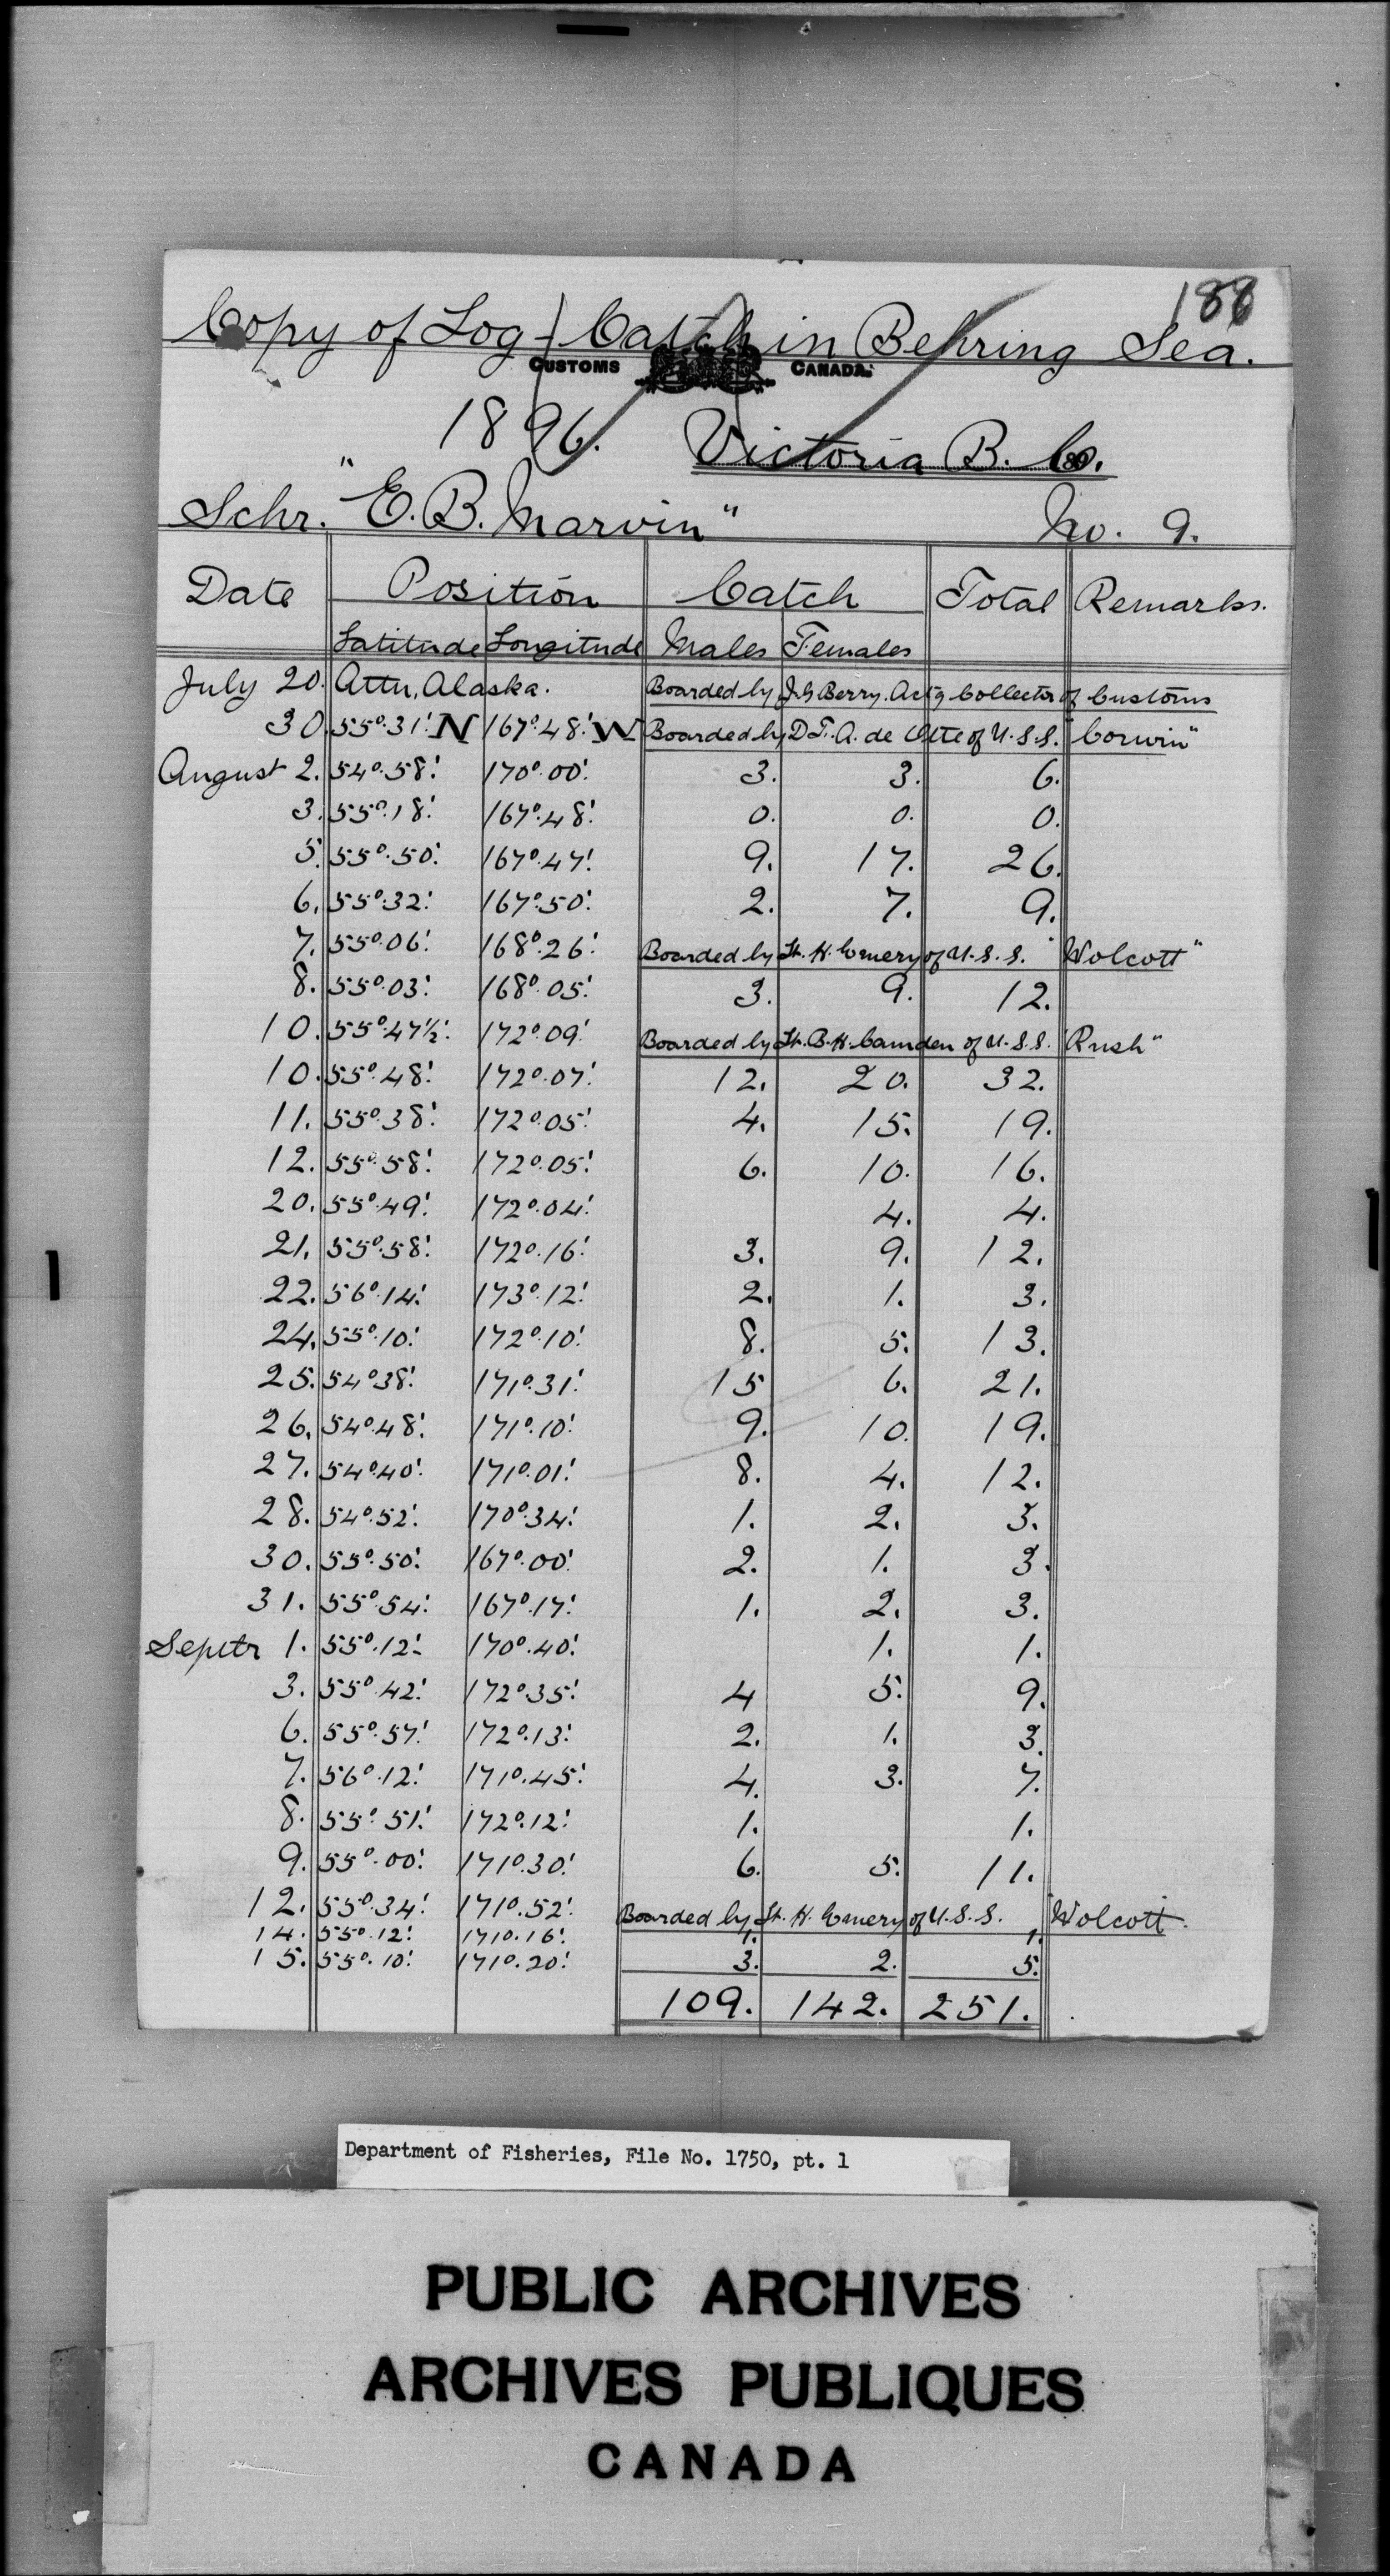 188
Copy of Log - Catch in Behring Sea.
CUSTOMS CANADA.
1896. Victoria B. C.
Schr. "E. B. Marvin" No. 9.
Date Position Catch Total Remarks.
Latitude Longitude Males Females
July 20. Attu, Alaska. Boarded by J. G. Berry. Actg Collector of Customs
30. 55°.31'. N 167°.48'. W Boarded by D. F. A. de Otte of U.S.S. "Corwin"
August 2. 54°.58'. 170°.00'. 3. 3. 6.
3. 55°.18'. 167°.48'. 0. 0. 0.
5. 55°.50'. 167°.47'. 9. 17. 26.
6. 55°.32'. 167°.50'. 2. 7. 9.
7. 55°.06'. 168°.26'. Boarded by Lt. H. Emery of U.S.S. "Wolcott"
8. 55°.03'. 168°.05'. 3. 9. 12.
10. 55°.47½'. 172°.09'. Boarded by Lt. B. H. Camden of U.S.S. "Rush"
10. 55°.48'. 172°.07'. 12. 20. 32.
11. 55°.38'. 172°.05'. 4. 15. 19.
12. 55°.58'. 172°.05'. 6. 10. 16.
20. 55°.49'. 172°.04'. 4. 4.
21. 55°.58'. 172°.16'. 3. 9. 12.
22. 56°.14'. 173°.12'. 2. 1. 3.
24. 55°.10'. 172°.10'. 8. 5. 13.
25. 54°.38'. 171°.31'. 15 6. 21.
26. 54°.48'. 171°.10'. 9. 10. 19.
27. 54°.40'. 171°.01'. 8. 4. 12.
28. 54°.52'. 170°.34'. 1. 2. 3.
30. 55°.50'. 167°.00'. 2. 1. 3.
31. 55°.54'. 167°.17'. 1. 2. 3.
Septr 1. 55°.12'. 170°.40'. 1. 1.
3. 55°.42'. 172°.35'. 4 5. 9.
6. 55°.57'. 172°.13'. 2. 1. 3.
7. 56°.12'. 171°.45'. 4. 3. 7.
8. 55°.51'. 172°.12'. 1. 1.
9. 55°.00'. 171°.30'. 6. 5. 11.
12. 55°.34'. 171°.52'. Boarded by Lt. H. Emery of U.S.S. "Wolcott.
14. 55°.12'. 171°.16'. 1. 1.
15. 55°.10'. 171°.20'. 3. 2. 5.
109. 142. 251.
Department of Fisheries, File No. 1750, pt. 1
PUBLIC ARCHIVES
ARCHIVES PUBLIQUES
CANADA